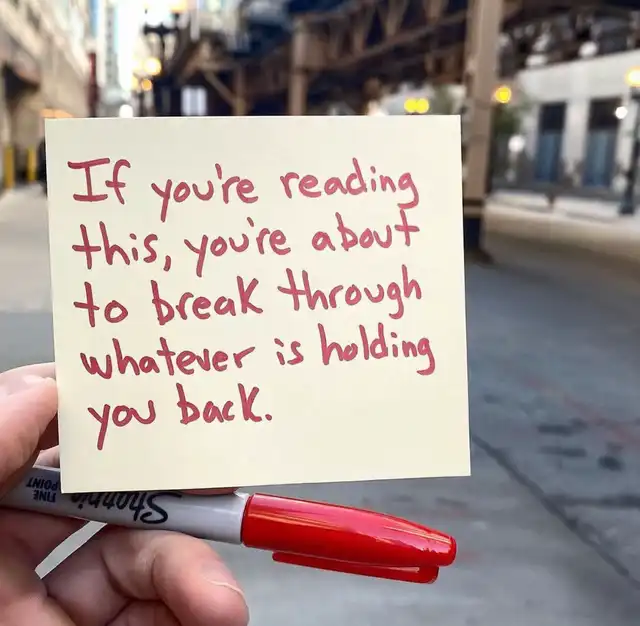 If you're reading
this, you're about
to break through
whatever is holding
you back.
Sharpie
FINE
POINT